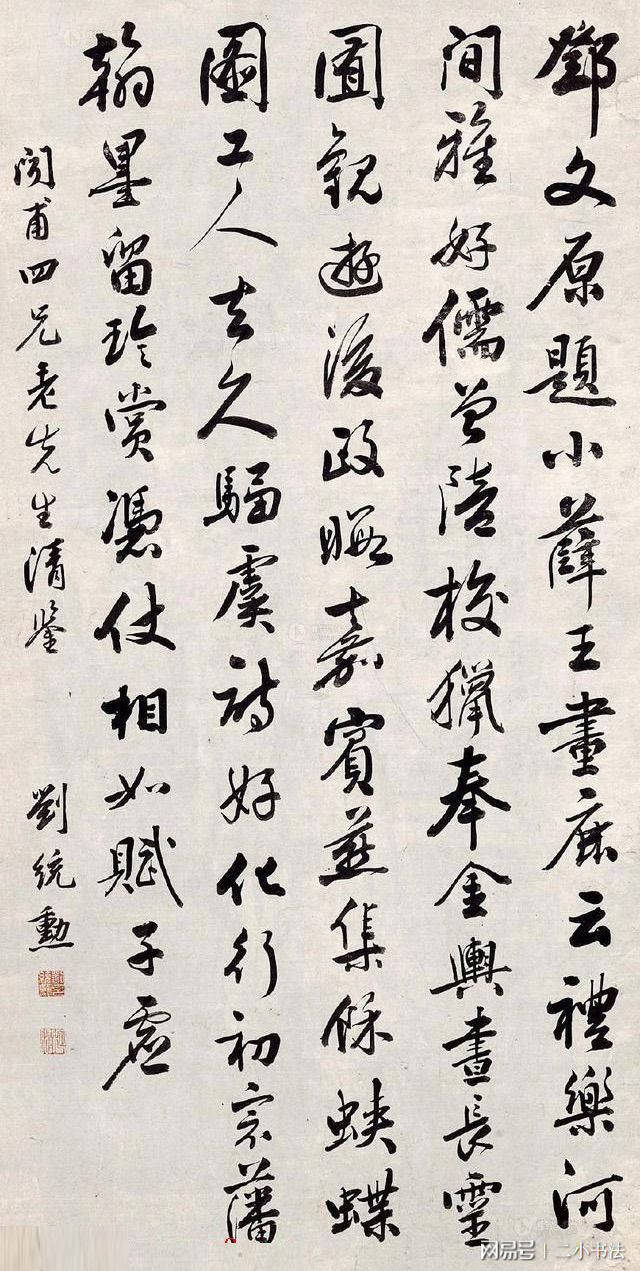 鄧文原題小薛王畫鹿云禮樂河
間雅好儒曾陪校獵奉金輿晝長靈
囿觀遊後政暇嘉賓燕集餘蛺蝶
圖工人去久騶虞詩好化行初宗藩
翰墨留珍賞憑仗相如賦子虛
閱甫四兄老先生清鑒
劉統勳
网易号 | 二小书法